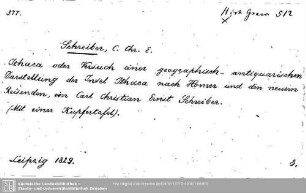 377.
Hist. Graec 512
Schreiber, C. Chr. E.
Ithaca oder Versuch einer geographisch-antiquarischen
Darstellung der Insel Ithaca nach Homer und den neuern
Reisenden, von Carl Christian Ernst Schreiber.
(Mit einer Kupfertafel).
Leipzig 1829.
8.